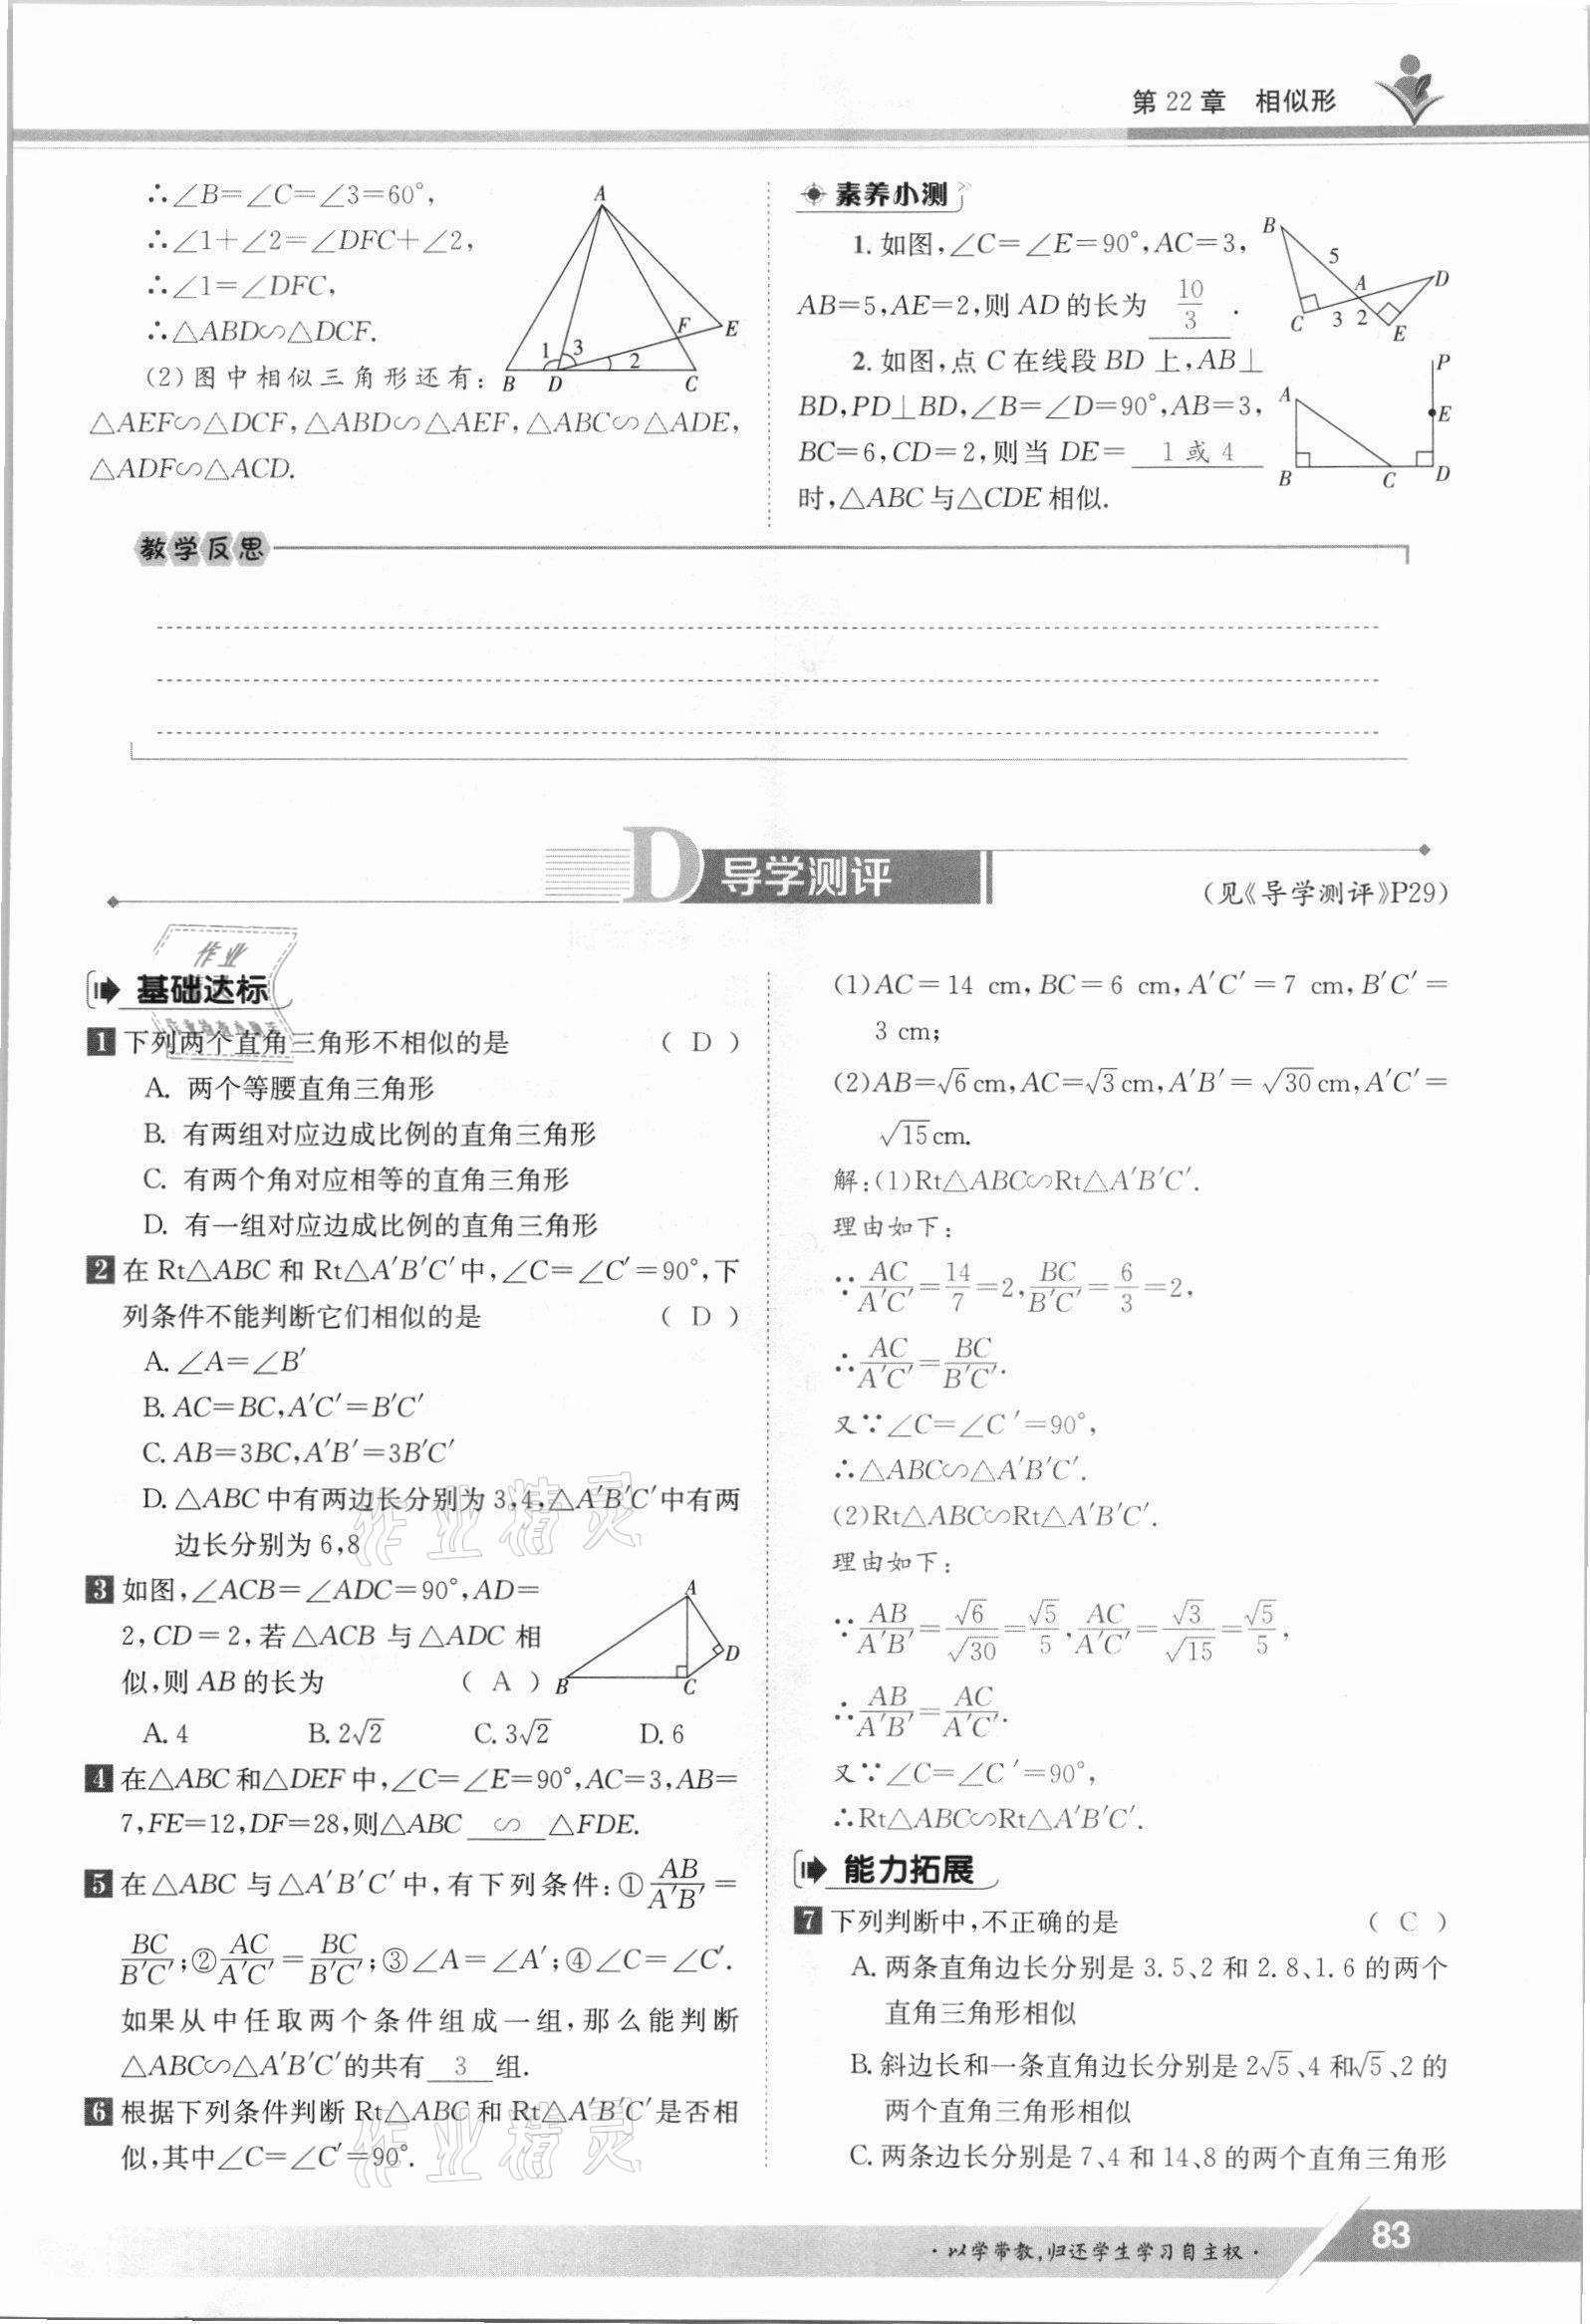 第 22 章　相似形
∴∠B=∠C=∠3=60°,
∴∠1+∠2=∠DFC+∠2,
∴∠1=∠DFC,
∴△ABD∽△DCF.
(2)图中相似三角形还有:
△AEF∽△DCF,△ABD∽△AEF,△ABC∽△ADE,
△ADF∽△ACD.
A
F
E
1
3
2
B
D
C
素养小测
1. 如图,∠C=∠E=90°,AC=3,
AB=5,AE=2,则 AD 的长为 10/3 .
B
5
A
D
C
3
2
E
2. 如图,点 C 在线段 BD 上,AB⊥
BD,PD⊥BD,∠B=∠D=90°,AB=3,
BC=6,CD=2,则当 DE= 1 或 4
时,△ABC 与△CDE 相似.
P
A
E
B
C
D
教学反思
D 导学测评
(见《导学测评》P29)
作业
基础达标
1 下列两个直角三角形不相似的是 ( D )
A. 两个等腰直角三角形
B. 有两组对应边成比例的直角三角形
C. 有两个角对应相等的直角三角形
D. 有一组对应边成比例的直角三角形
2 在 Rt△ABC 和 Rt△A′B′C′中,∠C=∠C′=90°,下
列条件不能判断它们相似的是 ( D )
A. ∠A=∠B′
B. AC=BC,A′C′=B′C′
C. AB=3BC,A′B′=3B′C′
D. △ABC 中有两边长分别为 3,4,△A′B′C′中有两
边长分别为 6,8
作业精灵
3 如图,∠ACB=∠ADC=90°,AD=
2,CD=2,若△ACB 与△ADC 相
似,则 AB 的长为 ( A )
A
D
B
C
A. 4 B. 2√2 C. 3√2 D. 6
4 在△ABC 和△DEF 中,∠C=∠E=90°,AC=3,AB=
7,FE=12,DF=28,则△ABC ∽ △FDE.
5 在△ABC 与△A′B′C′中,有下列条件:①AB/A′B′=
BC/B′C′;②AC/A′C′=BC/B′C′;③∠A=∠A′;④∠C=∠C′.
如果从中任取两个条件组成一组,那么能判断
△ABC∽△A′B′C′的共有 3 组.
6 根据下列条件判断 Rt△ABC 和 Rt△A′B′C′是否相
似,其中∠C=∠C′=90°.
作业精灵
(1)AC=14 cm,BC=6 cm,A′C′=7 cm,B′C′=
3 cm;
(2)AB=√6cm,AC=√3cm,A′B′=√30cm,A′C′=
√15cm.
解:(1)Rt△ABC∽Rt△A′B′C′.
理由如下:
∵AC/A′C′=14/7=2,BC/B′C′=6/3=2,
∴AC/A′C′=BC/B′C′.
又∵∠C=∠C′=90°,
∴△ABC∽△A′B′C′.
(2)Rt△ABC∽Rt△A′B′C′.
理由如下:
∵AB/A′B′=√6/√30=√5/5,AC/A′C′=√3/√15=√5/5,
∴AB/A′B′=AC/A′C′.
又∵∠C=∠C′=90°,
∴Rt△ABC∽Rt△A′B′C′.
能力拓展
7 下列判断中,不正确的是 ( C )
A. 两条直角边长分别是 3.5、2 和 2.8、1.6 的两个
直角三角形相似
B. 斜边长和一条直角边长分别是 2√5、4 和√5、2 的
两个直角三角形相似
C. 两条边长分别是 7、4 和 14、8 的两个直角三角形
·以学带教,归还学生学习自主权·
83